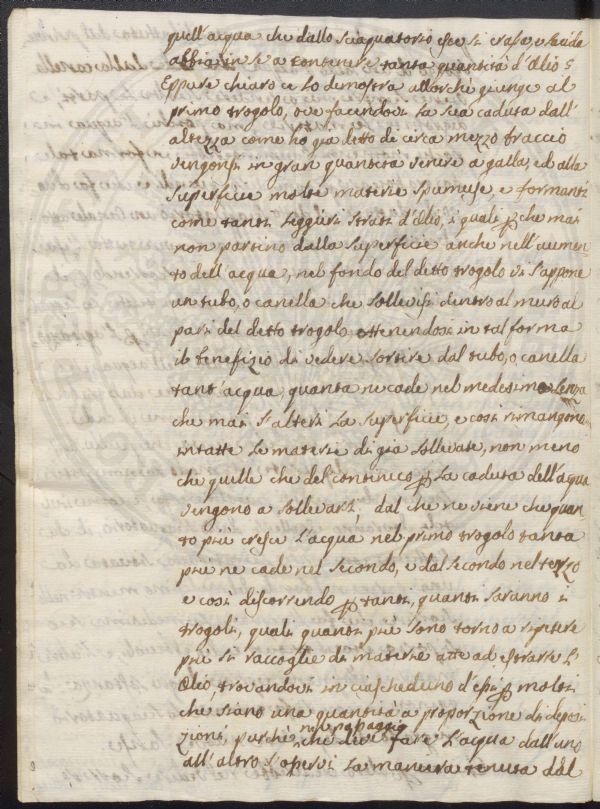 quell'acqua che dallo sciaquatorio esce si crassa, e lucida
abbia in se a contenere tanta quantità d'Olio?
Eppure chiaro ce lo demostra allorchè giunge al
primo trogolo, ove facendovi la sua caduta dall'
altezza come hò già detto di circa mezzo braccio
vengonsi in gran quantità venire a galla, ed alla
superficie molte materie spumose, e formanti
come tanti leggieri strati d'Olio, i quali p che mai
non partino dalla superficie anche nell'aumen-
to dell'acqua, nel fondo del detto trogolo vi s'appone
un tubo, o canella che sollevisi dentro al muro al
pari del detto trogolo ottenendosi in tal forma
il benefizio di vedere sortire dal tubo, o canella
tant'acqua quanta ne cade nel medesimo senza
che mai s'alteri la superficie, e così rimangono
intatte le materie di già sollevate, non meno
che quelle che del continuo p la caduta dell'acqua
vengono a sollevarsi, dal che ne viene che quan-
to più cresce l'acqua nel primo trogolo tanta
più ne cade nel secondo, e dal secondo nel terzo
e così discorrendo p tanti, quanti saranno i
trogoli, quali quanti più sono torno a ripetere
più si raccoglie di materie atte ad estrarre l'
Olio trovandovi in ciascheduno d'essi p molti
che siano una quantità a proporzione di deposi
zioni, purchè nel passaggio che deve fare l'acqua dall'uno
all'altro s'osservi la maniera tenuta dal